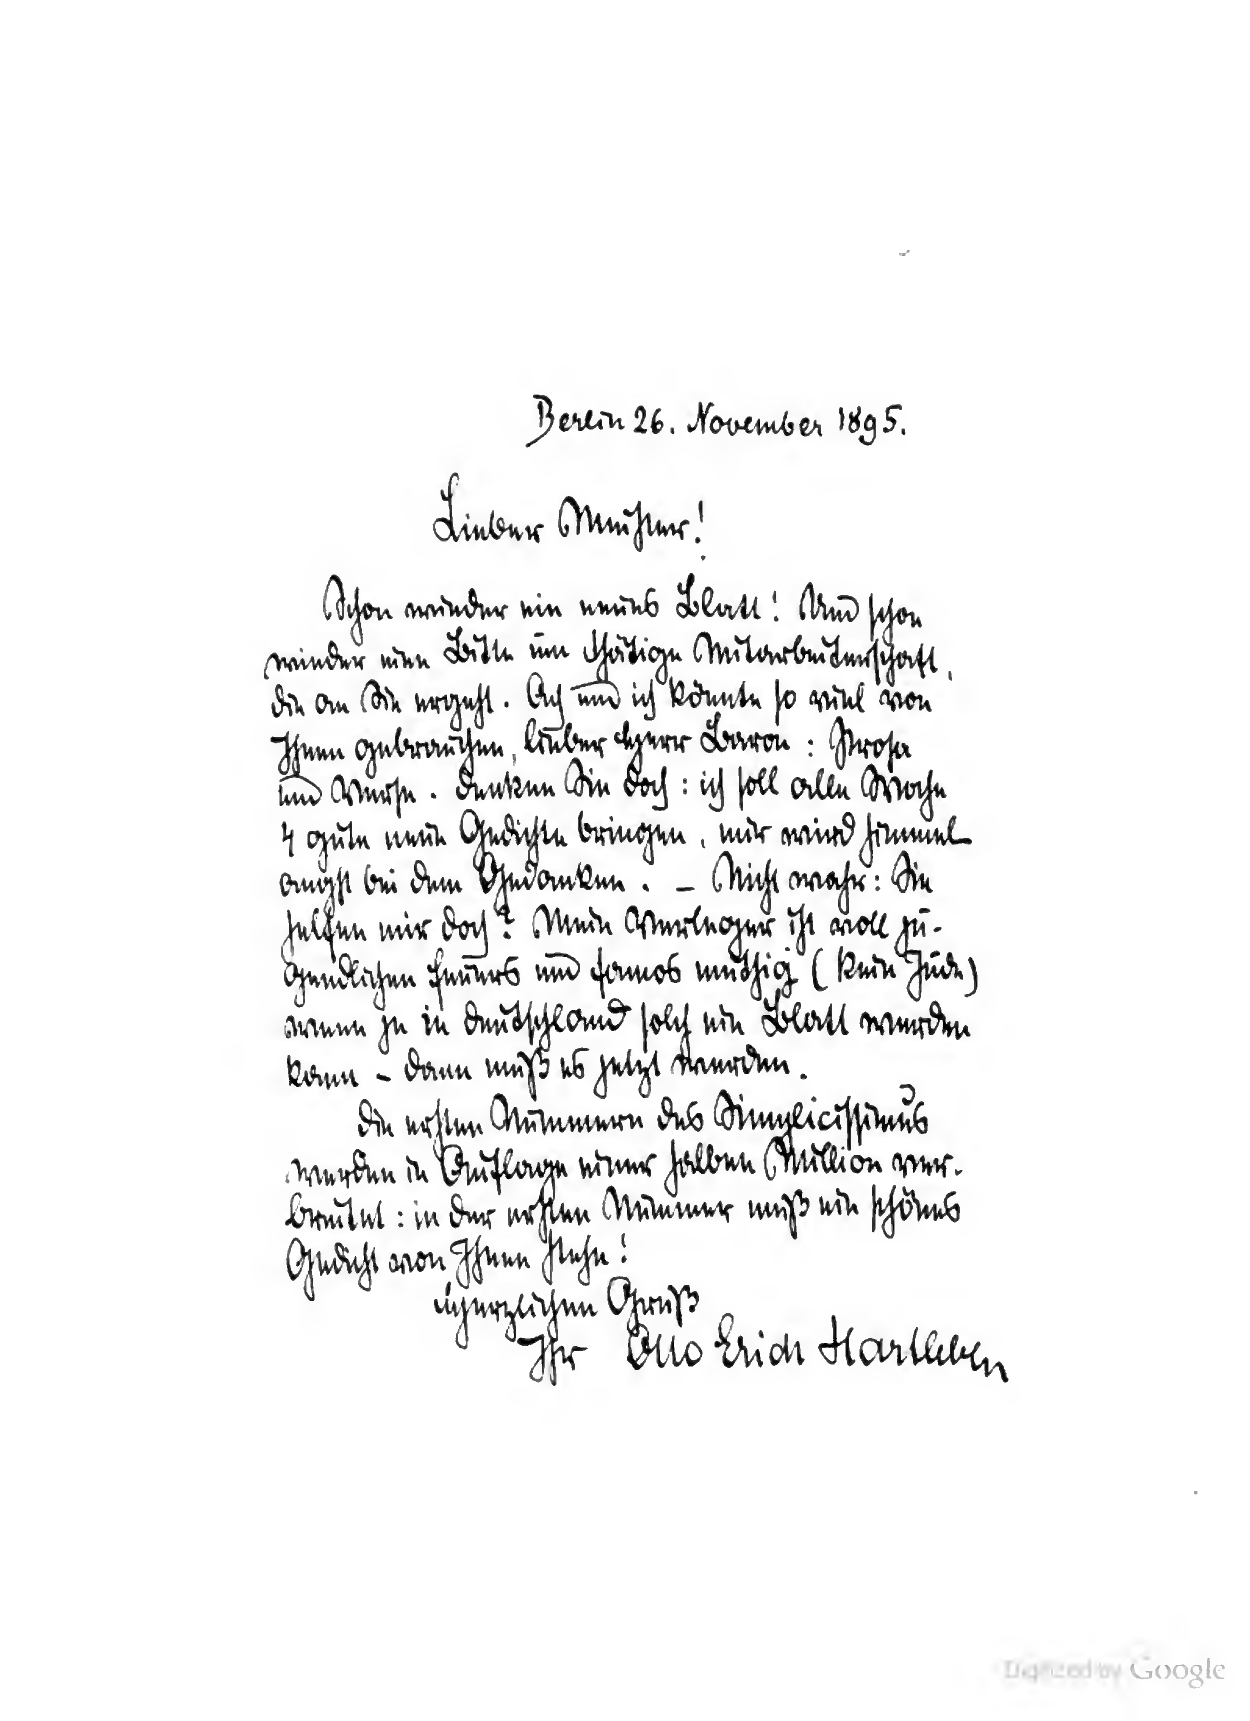 Berlin 26. November 1895.
Lieber Meister!
Schon wieder ein neues Blatt! Und schon
wieder eine Bitte um thätige Mitarbeiterschaft,
die an Sie ergeht. Ach und ich könnte so viel von
Ihnen gebrauchen, lieber Herr Baron: Prosa
und Verse. Denken Sie doch: ich soll alle Woche
4 gute neue Gedichte bringen, mir wird himmel
angst bei dem Gedanken. – Nicht wahr: Sie
helfen mir doch? Mein Verleger ist voll ju-
gendlichen Feuers und famos muthig (kein Jude)
wenn je in Deutschland solch ein Blatt werden
kann – dann muß es jetzt werden.
Die ersten Nummern des Simplicissimus
werden in Auflage einer halben Million ver-
breitet: in der ersten Nummer muß ein schönes
Gedicht von Ihnen stehn!
Herzlichen Gruß
Ihr Otto Erich Hartleben
Digitized by Google